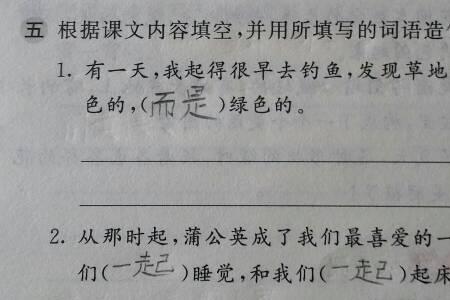 五 根据课文内容填空,并用所填写的词语造
1. 有一天,我起得很早去钓鱼,发现草地
色的,(而是)绿色的。
2. 从那时起,蒲公英成了我们最喜爱的一
们(一起)睡觉,和我们(一起)起床